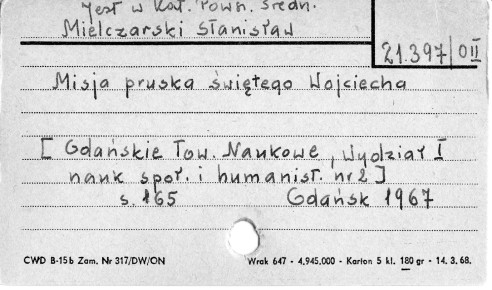 Jest w Kat. Pown. Średn.
Mielczarski Stanisław
21.397/O II
Misja pruska świętego Wojciecha
[Gdańskie Tow. Naukowe, Wydział I
nauk społ. i humanist. nr 2]
s. 165 Gdańsk 1967
CWD B-15b Zam. Nr 317/DW/ON Wrak 647 - 4.945.000 - Karton 5 kl. 180 gr - 14. 3. 68.